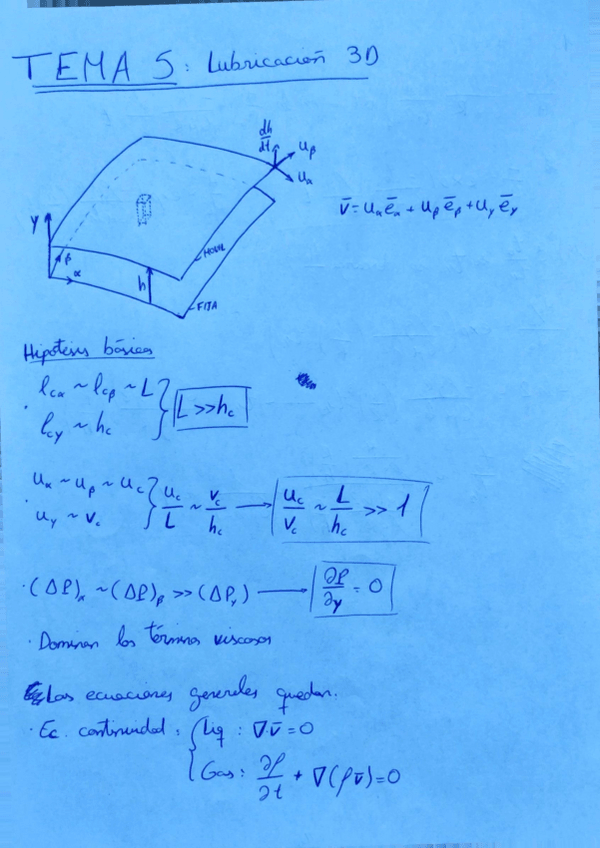 TEMA 5: Lubricación 3D
dh/dt
u_β
u_α
v̄ = u_α ē_α + u_β ē_β + u_y ē_y
y
β
α
h
MOVIL
FIJA
Hipótesis básicas
· l_cα ~ l_cβ ~ L } L >> h_c
l_cy ~ h_c
· u_α ~ u_β ~ u_c } u_c/L ~ v_c/h_c → u_c/v_c ~ L/h_c >> 1
u_y ~ v_c
· (ΔP)_α ~ (ΔP)_β >> (ΔP_y) → ∂P/∂y = 0
· Dominan los términos viscosos
Las ecuaciones generales quedan.
· Ec. continuidad : { Liq : ∇·v̄ = 0
Gas : ∂ρ/∂t + ∇(ρv̄) = 0